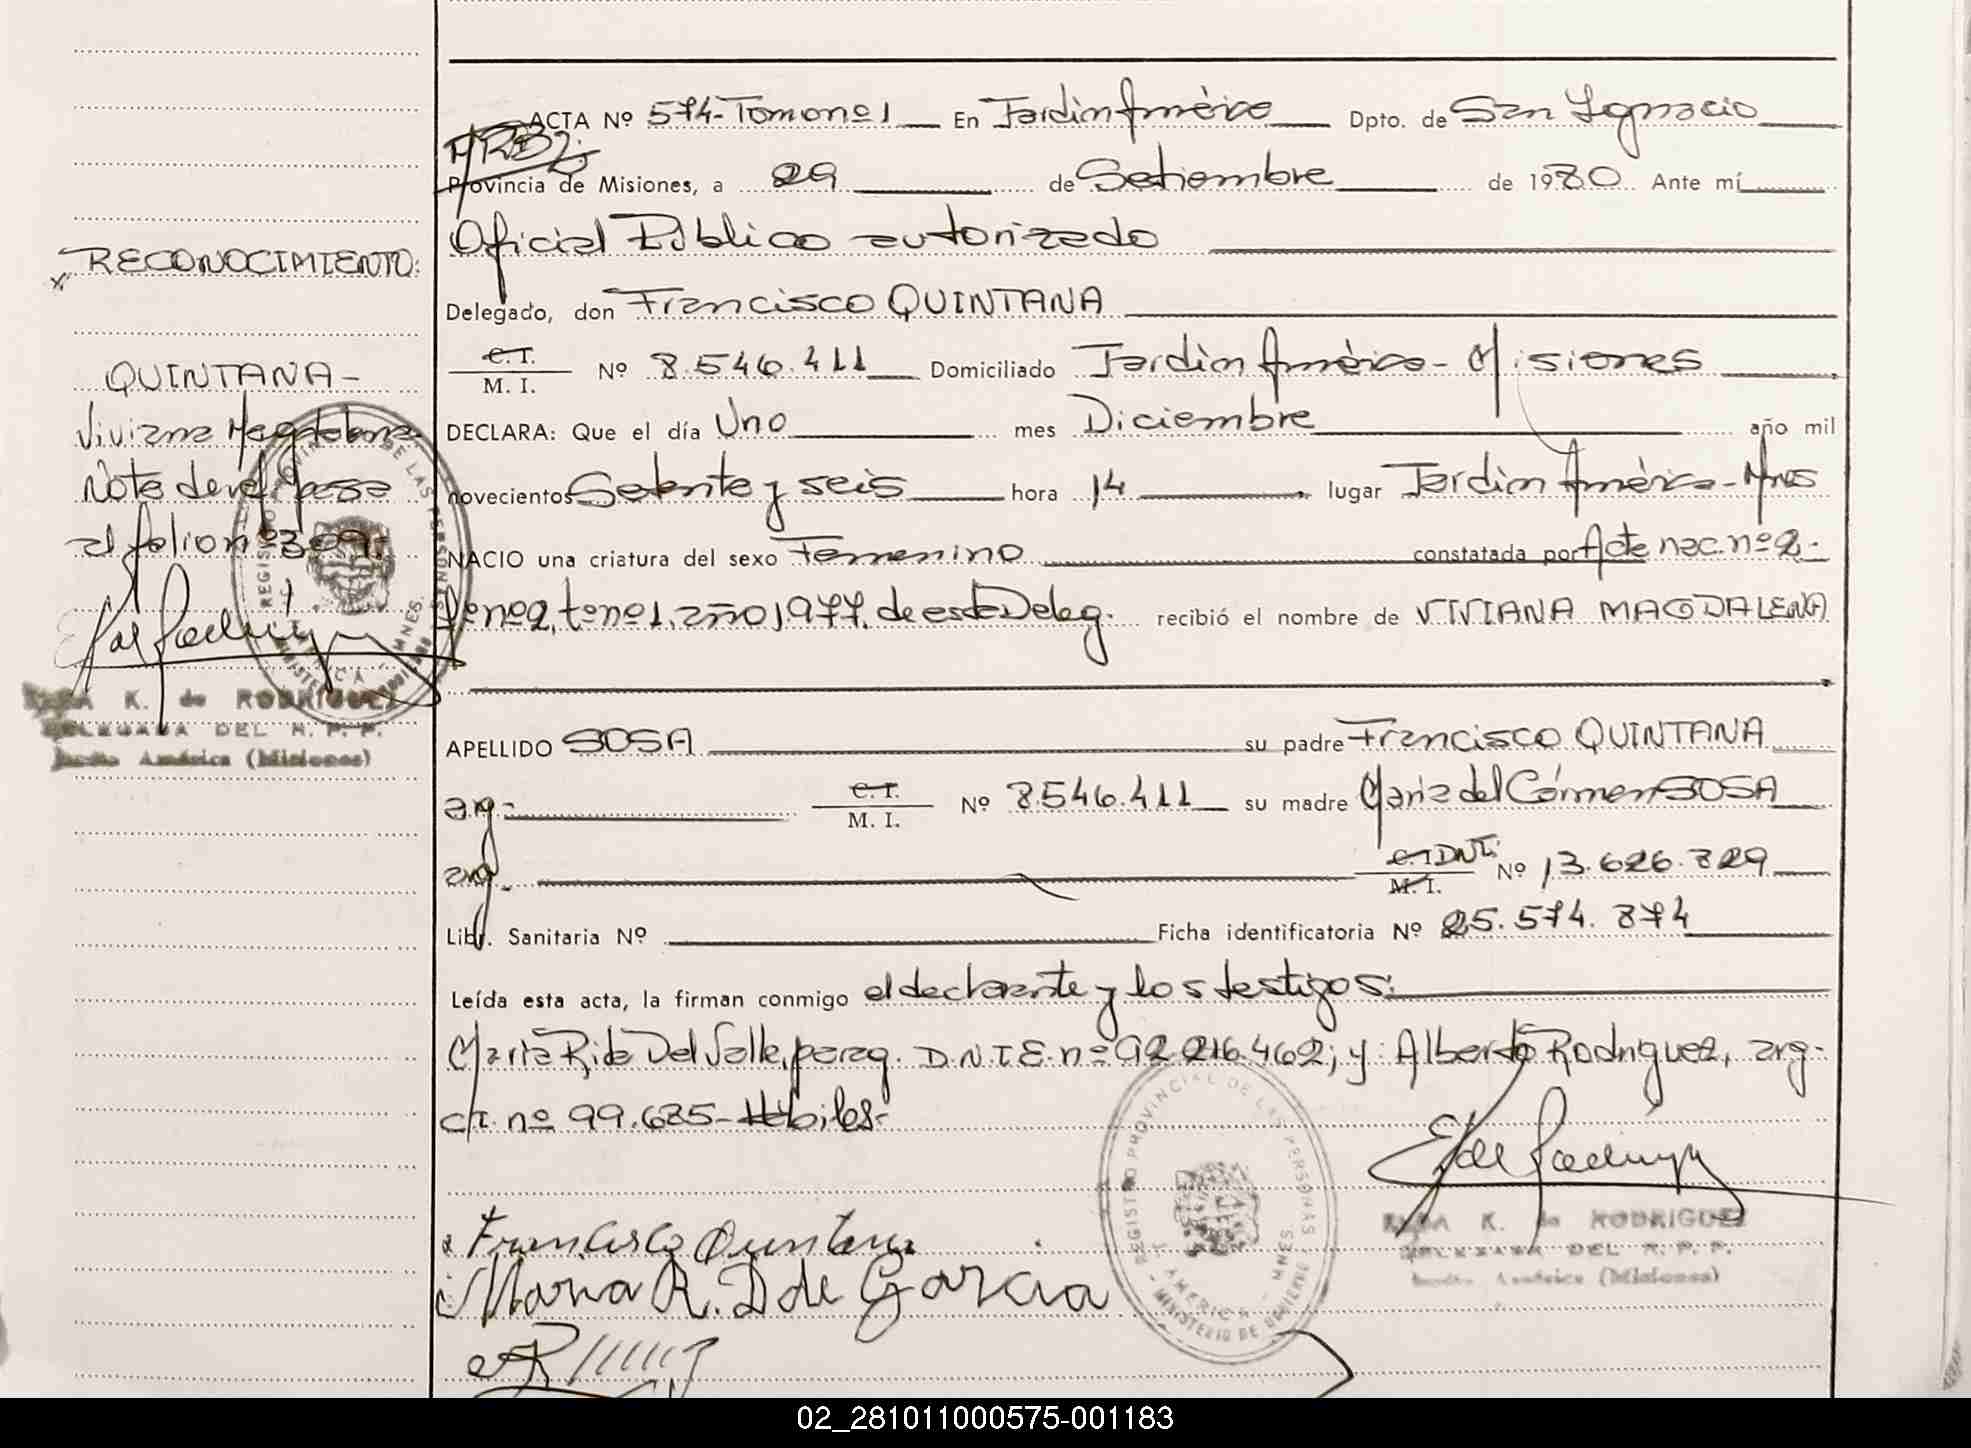 ACTA Nº 574- Tomo nº 1 En Jardín América Dpto. de San Ignacio
Provincia de Misiones, a 29 de Setiembre de 1980. Ante mí
Oficial Público autorizado
Delegado, don Francisco QUINTANA
C.I.
M. I. Nº 8.546.411 Domiciliado Jardín América- Misiones
DECLARA: Que el día Uno mes Diciembre año mil
novecientos Setenta y seis hora 14 lugar Jardín América- Mnes
NACIO una criatura del sexo Femenino constatada por Acta nac. nº 2.
Fº nº 2, tº nº 1, año 1977, de esta Deleg. recibió el nombre de VIVIANA MAGDALENA
APELLIDO SOSA su padre Francisco QUINTANA
arg.- C.I.
M. I. Nº 8.546.411 su madre María del Cármen SOSA
arg.- C.I. DNI.
M. I. Nº 13.626.829
Libr. Sanitaria Nº Ficha identificatoria Nº 25.574.874
Leída esta acta, la firman conmigo el declarante y los testigos:
María Rita Del Valle, parag. D.N.I.E. nº 92.216.462; y Alberto Rodriguez, arg.-
C.I. nº 99.685- Hábiles-
Francisco Quintana
Maria R. D de Garcia
K. de RODRIGUEZ
DELEGADA DEL R. P. P.
América (Misiones)
REGISTRO PROVINCIAL DE LAS PERSONAS
AMERICA - MNES.
MINISTERIO DE GOBIERNO
RECONOCIMIENTO:
QUINTANA-
Viviana Magdalena
Nota de ref. pasa
al folio nº 309.-
K. de RODRIGUEZ
DELEGADA DEL R. P. P.
América (Misiones)
02_281011000575-001183